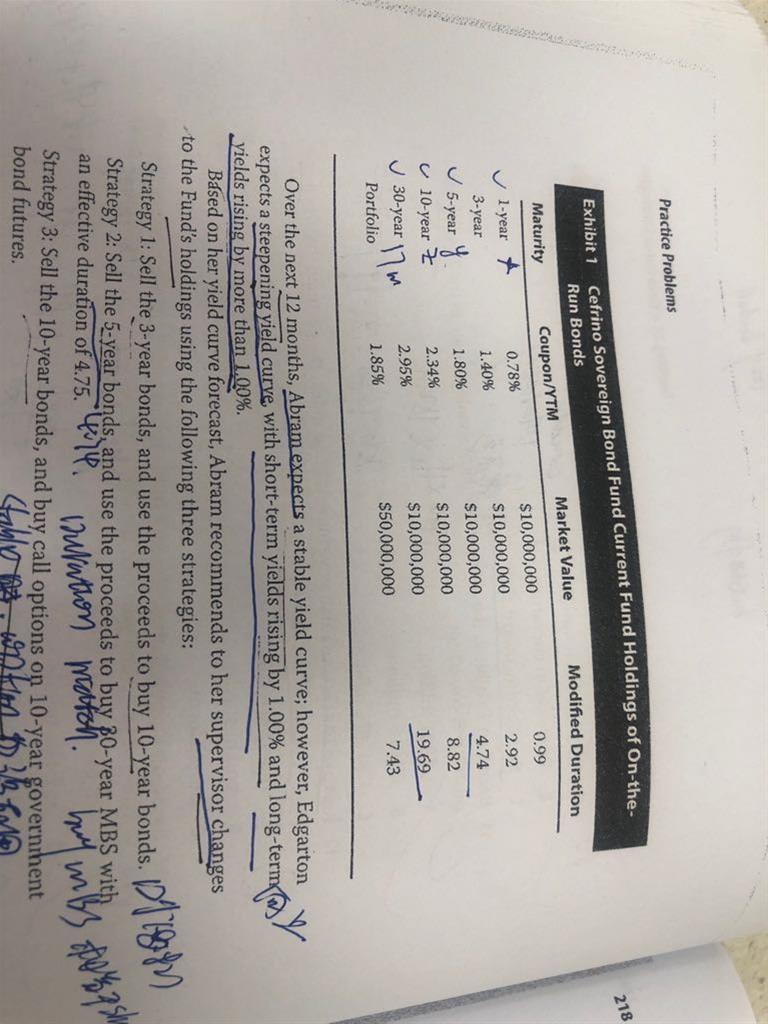 218
Practice Problems
Exhibit 1 Cefrino Sovereign Bond Fund Current Fund Holdings of On-the-
Run Bonds
Maturity Coupon/YTM Market Value Modified Duration
1-year 0.78% $10,000,000 0.99
3-year 1.40% $10,000,000 2.92
5-year y 1.80% $10,000,000 4.74
10-year z 2.34% $10,000,000 8.82
30-year 17m 2.95% $10,000,000 19.69
Portfolio 1.85% $50,000,000 7.43
Over the next 12 months, Abram expects a stable yield curve; however, Edgarton
expects a steepening yield curve, with short-term yields rising by 1.00% and long-term
yields rising by more than 1.00%.
Based on her yield curve forecast, Abram recommends to her supervisor changes
to the Fund's holdings using the following three strategies:
Strategy 1: Sell the 3-year bonds, and use the proceeds to buy 10-year bonds.
Strategy 2: Sell the 5-year bonds, and use the proceeds to buy 30-year MBS with
an effective duration of 4.75.
Duration match. buy mbs
Strategy 3: Sell the 10-year bonds, and buy call options on 10-year government
bond futures.